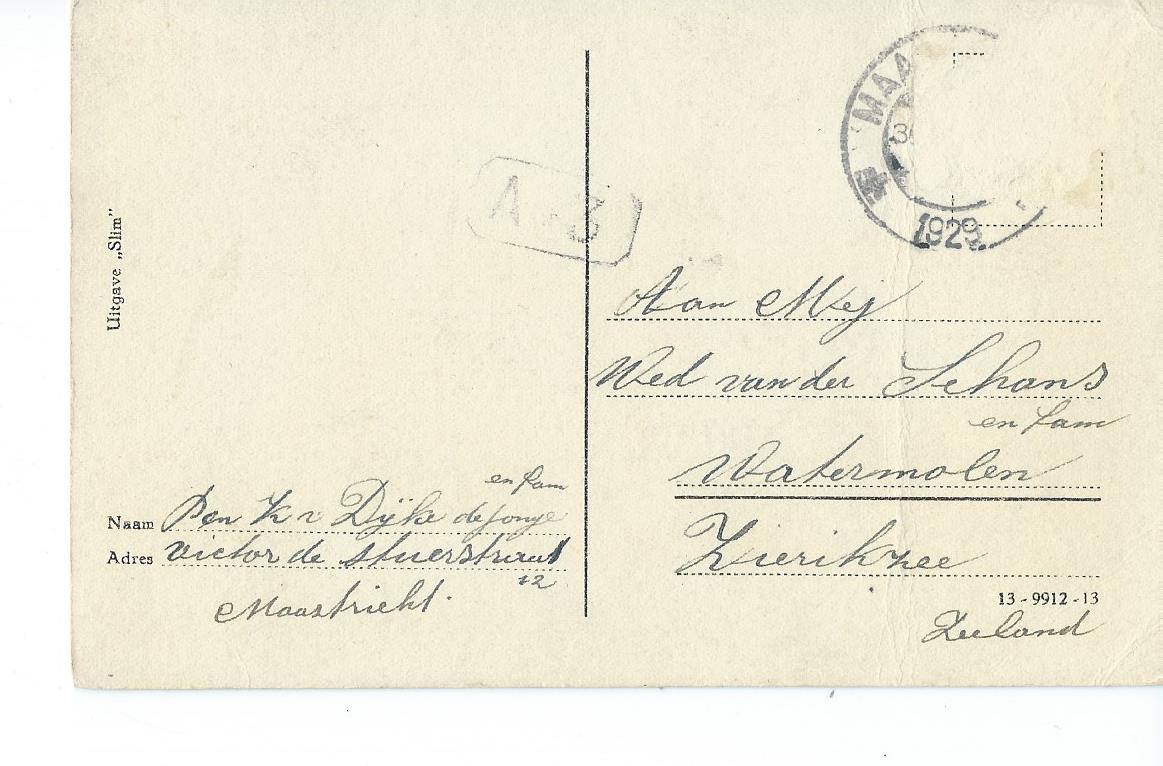 Uitgave „Slim”
MAA
1929
A 3
Aan Mej
Wed van der Schans
en fam
Watermolen
Zierikzee
13 - 9912 - 13
Zeeland
en fam
Naam P en K v Dijke de Jonge
Adres Victor de Stuersstraat
12
Maastricht.